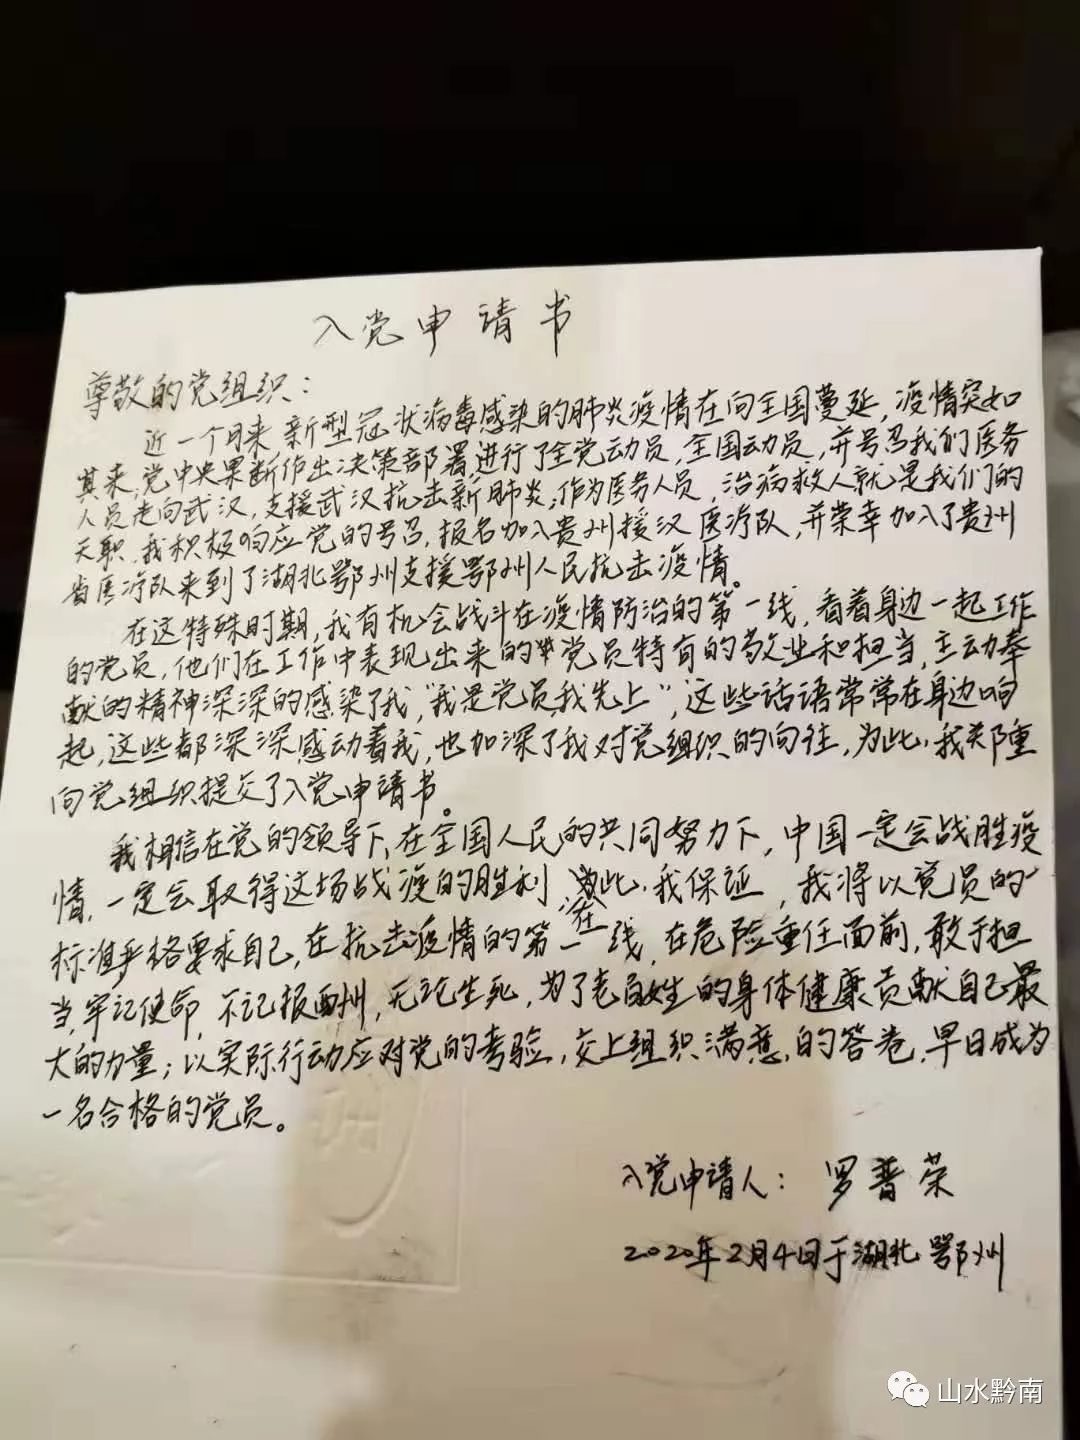 入党申请书
尊敬的党组织：
近一个月来新型冠状病毒感染的肺炎疫情在向全国蔓延，疫情突如
其来，党中央果断作出决策部署，进行了全党动员，全国动员，并号召我们医务
人员走向武汉，支援武汉抗击新肺炎；作为医务人员，治病救人就是我们的
天职，我积极响应党的号召，报名加入贵州援汉医疗队，并荣幸加入了贵州
省医疗队来到了湖北鄂州支援鄂州人民抗击疫情。
在这特殊时期，我有机会战斗在疫情防治的第一线，看着身边一起工作
的党员，他们在工作中表现出来的党员特有的敬业和担当，主动奉
献的精神深深的感染了我，“我是党员，我先上”，这些话语常常在身边响
起，这些都深深感动着我，也加深了我对党组织的向往，为此，我郑重
向党组织提交了入党申请书。
我相信在党的领导下，在全国人民的共同努力下，中国一定会战胜疫
情，一定会取得这场战疫的胜利，为此，我保证，我将以党员的
标准严格要求自己，在抗击疫情的第一在线，在危险重任面前，敢于担
当，牢记使命，不记报酬，无论生死，为了老百姓的身体健康贡献自己最
大的力量；以实际行动应对党的考验，交上组织满意的答卷，早日成为
一名合格的党员。
入党申请人：罗普荣
2020年2月4日于湖北鄂州
山水黔南